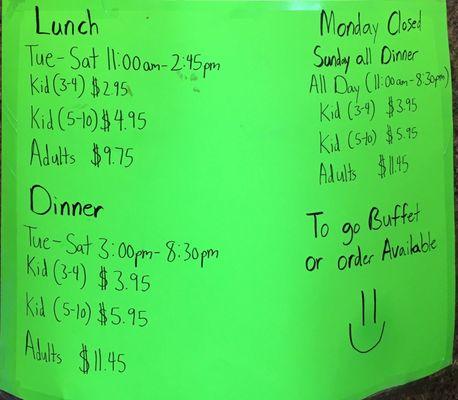 Lunch
Tue-Sat 11:00am-2:45pm
Kid (3-4) $2.95
Kid (5-10) $4.95
Adults $9.75
Dinner
Tue-Sat 3:00pm-8:30pm
Kid (3-4) $3.95
Kid (5-10) $5.95
Adults $11.45
Monday Closed
Sunday all Dinner
All Day (11:00am-8:30pm)
Kid (3-4) $3.95
Kid (5-10) $5.95
Adults $11.45
To go Buffet
or order Available